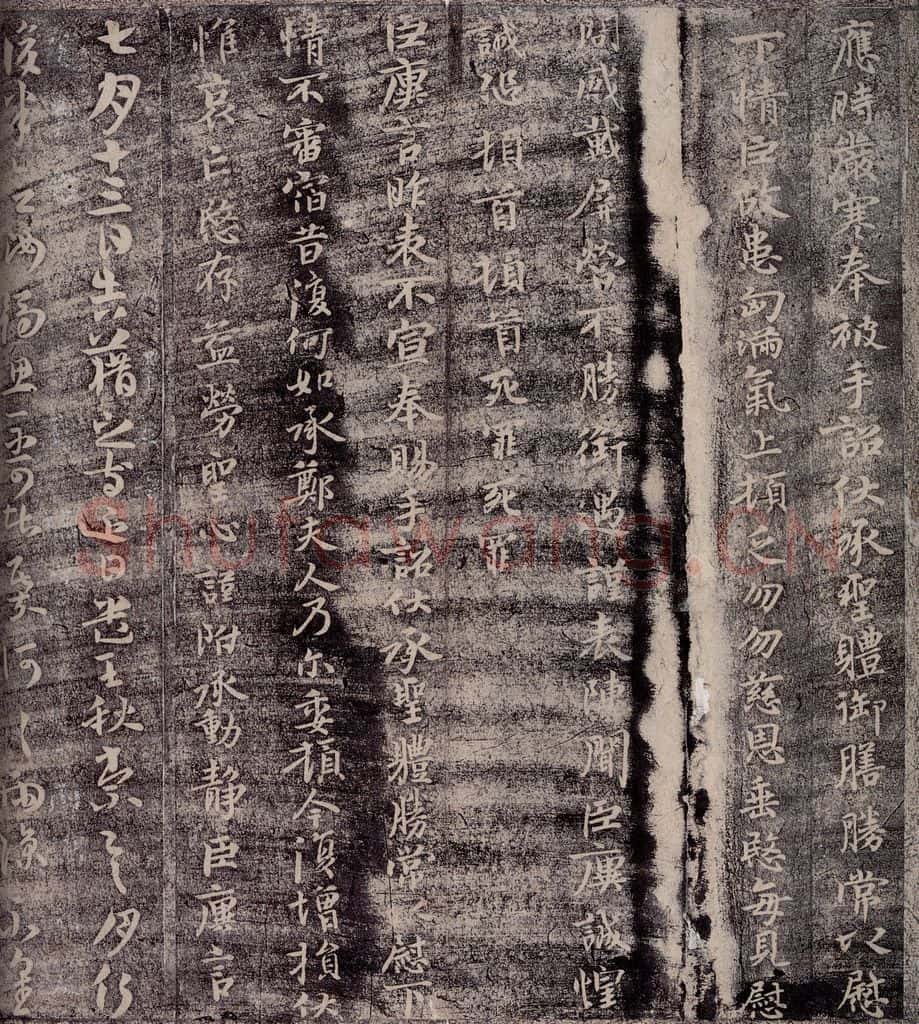 應時歲寒奉被手詔伏承聖體御膳勝常以慰
下情臣故患匈滿氣上頓乏勿勿慈恩垂愍每見慰
問感戴屏營不勝銜遇謹表陳聞臣廙誠惶
誠恐頓首頓首死罪死罪
臣廙言昨表不宣奉賜手詔伏承聖體勝常以慰下
情不審宿昔復何如承鄭夫人乃尔委頓今復增損伏
惟哀亡愍存益勞聖心謹附承動靜臣廙言
七月十三日告藉之等近日遣王秋索之月行
復
shufawang.CN